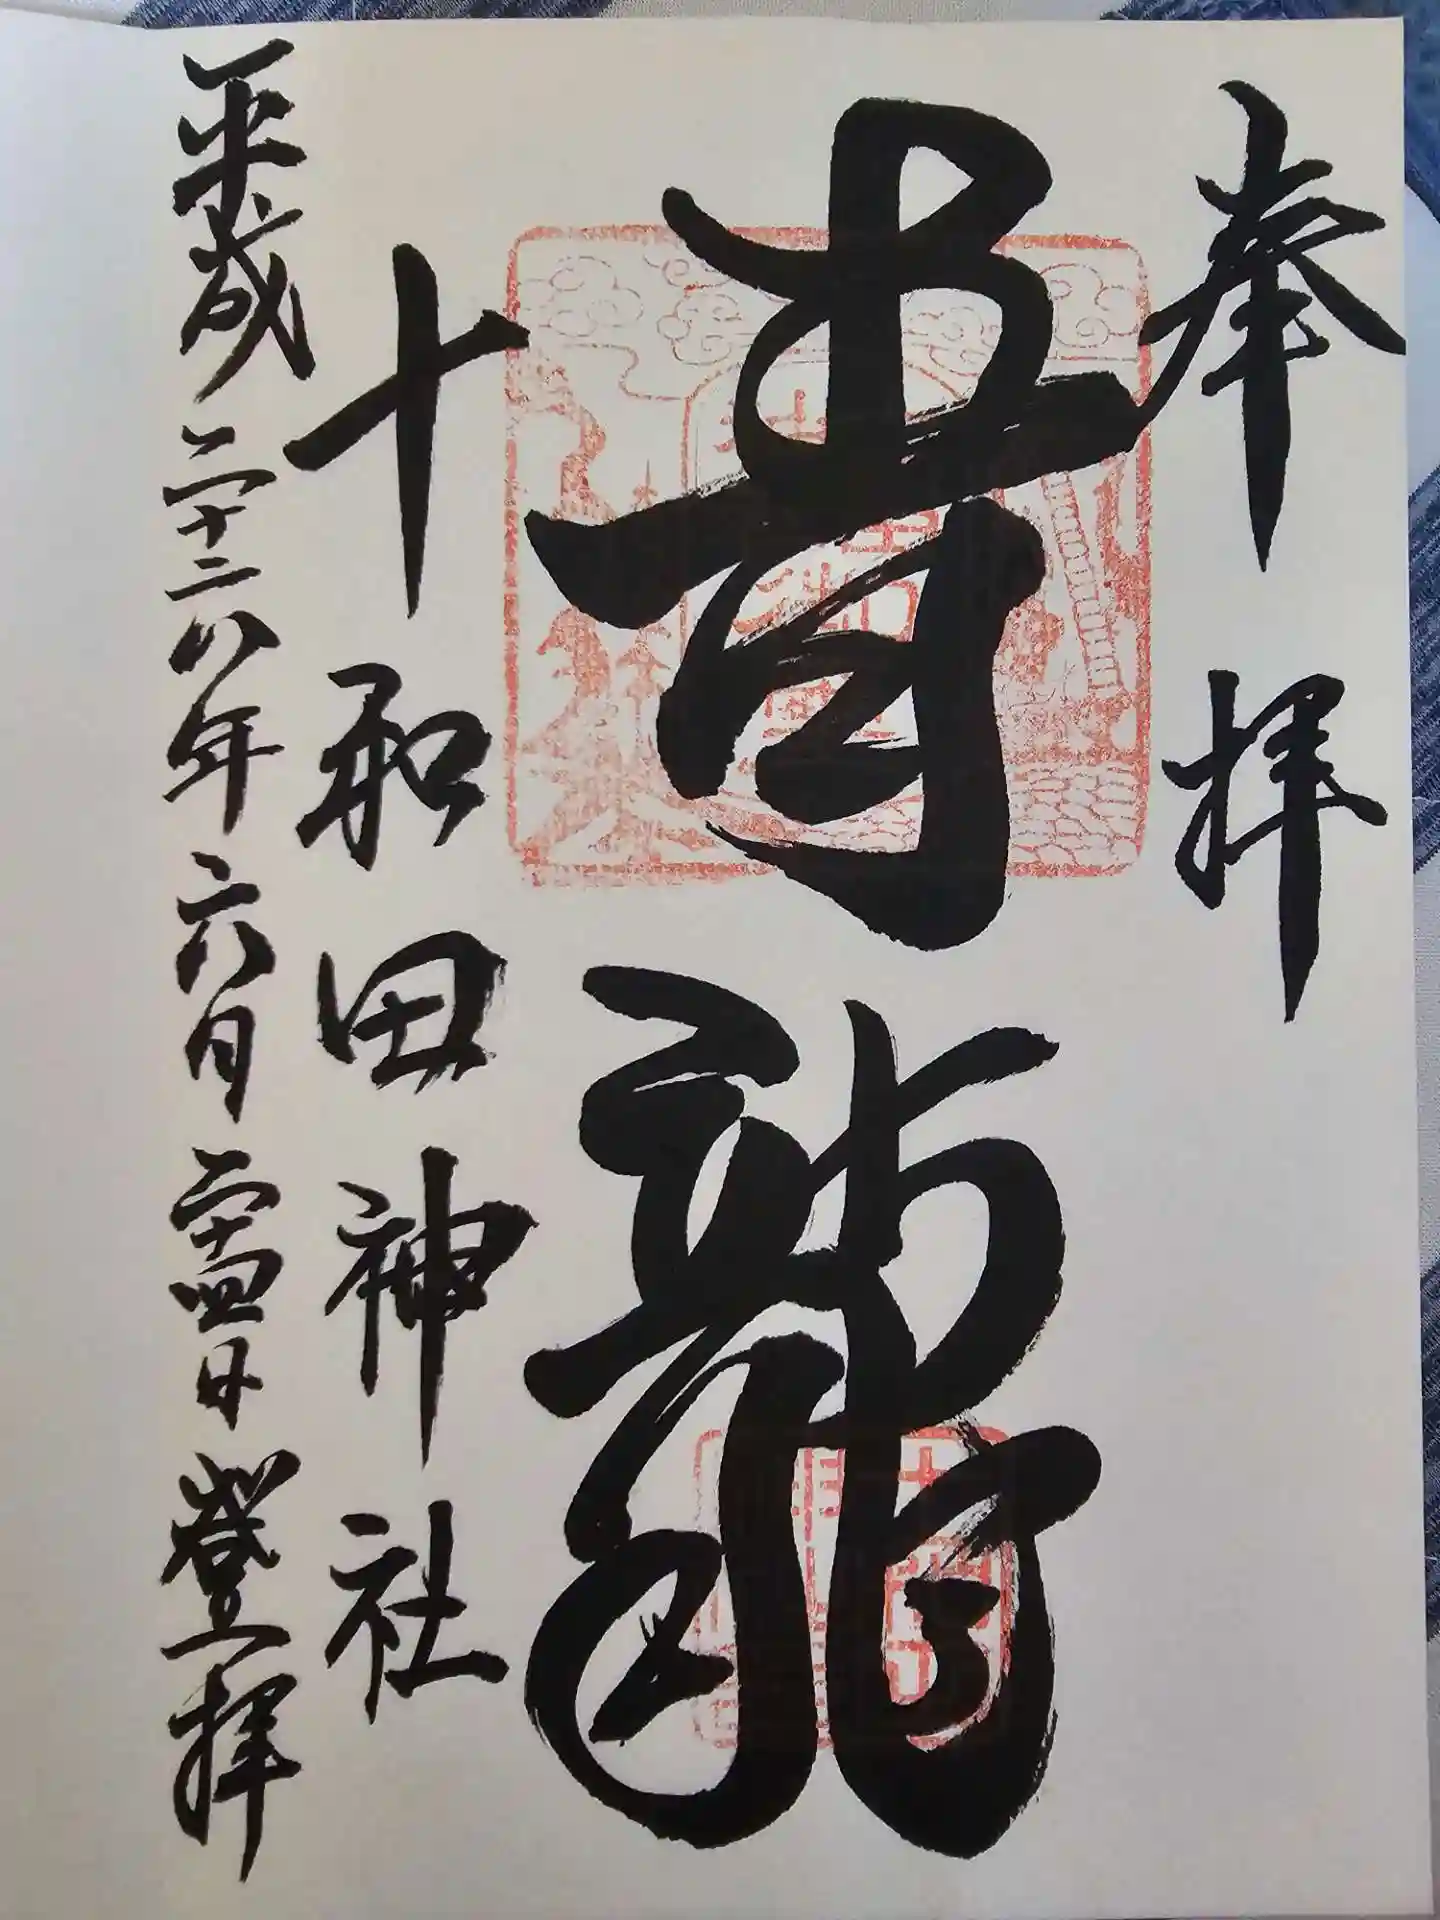 奉拝
青龍
十和田神社
平成二十六年六月二十四日登拝